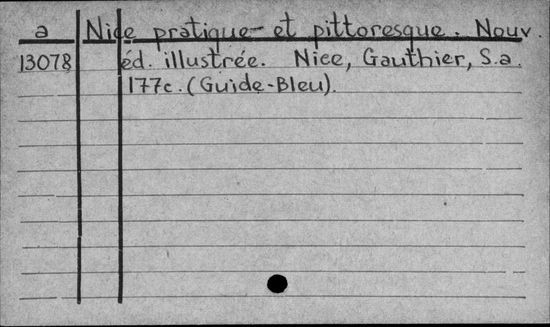 a Nice pratique et pittoresque. Nouv.
13078 éd. illustrée. Nice, Gauthier, S.a.
177c. (Guide-Bleu).